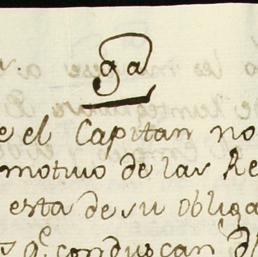 9a
e el Capitan no
motivo de las Re
esta de su obliga
s q.e conduzcan